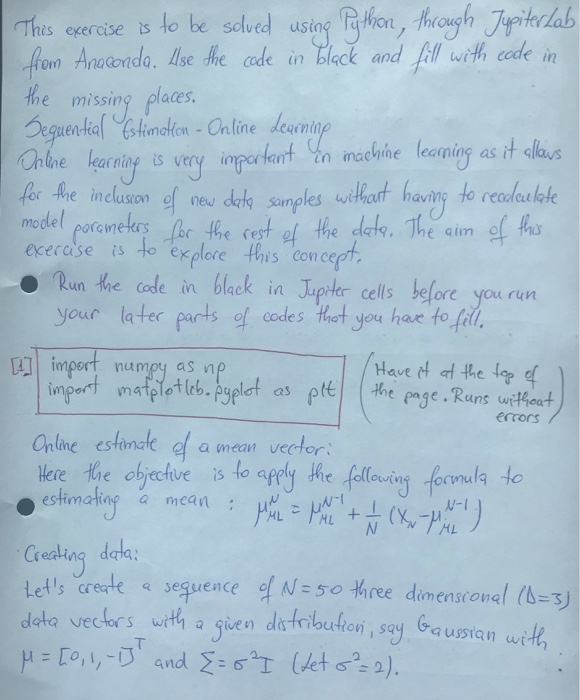 This exercise is to be solved using Python, through JupiterLab
from Anaconda. Use the code in black and fill with code in
the missing places.
Sequential Estimation - Online Learning
Online learning is very important in machine learning as it allows
for the inclusion of new data samples without having to recalculate
model parameters for the rest of the data. The aim of this
exercise is to explore this concept.
● Run the code in black in Jupiter cells before you run
your later parts of codes that you have to fill.
[1] import numpy as np
import matplotlib.pyplot as plt
(Have it at the top of
the page. Runs without
errors)
Online estimate of a mean vector:
Here the objective is to apply the following formula to
● estimating a mean : μ_ML^N = μ_ML^{N-1} + 1/N (x_N - μ_ML^{N-1})
Creating data:
Let's create a sequence of N=50 three dimensional (D=3)
data vectors with a given distribution, say Gaussian with
μ = [0, 1, -1]^T and Σ = σ²I (Let σ² = 2).